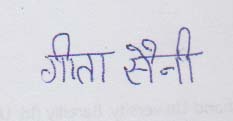 गीता सैनी